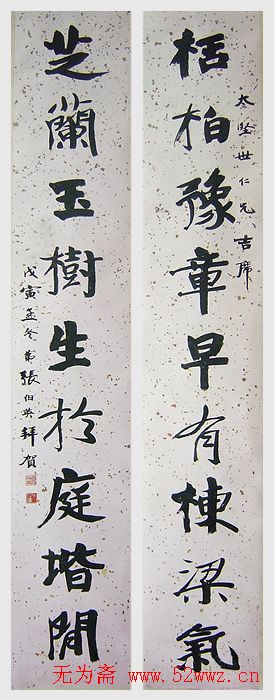 栝柏豫章早有棟梁氣
太堅世仁兄吉席
芝蘭玉樹生於庭堦間
戊寅孟冬弟張伯英拜賀
无为斋 www.52wwz.cn